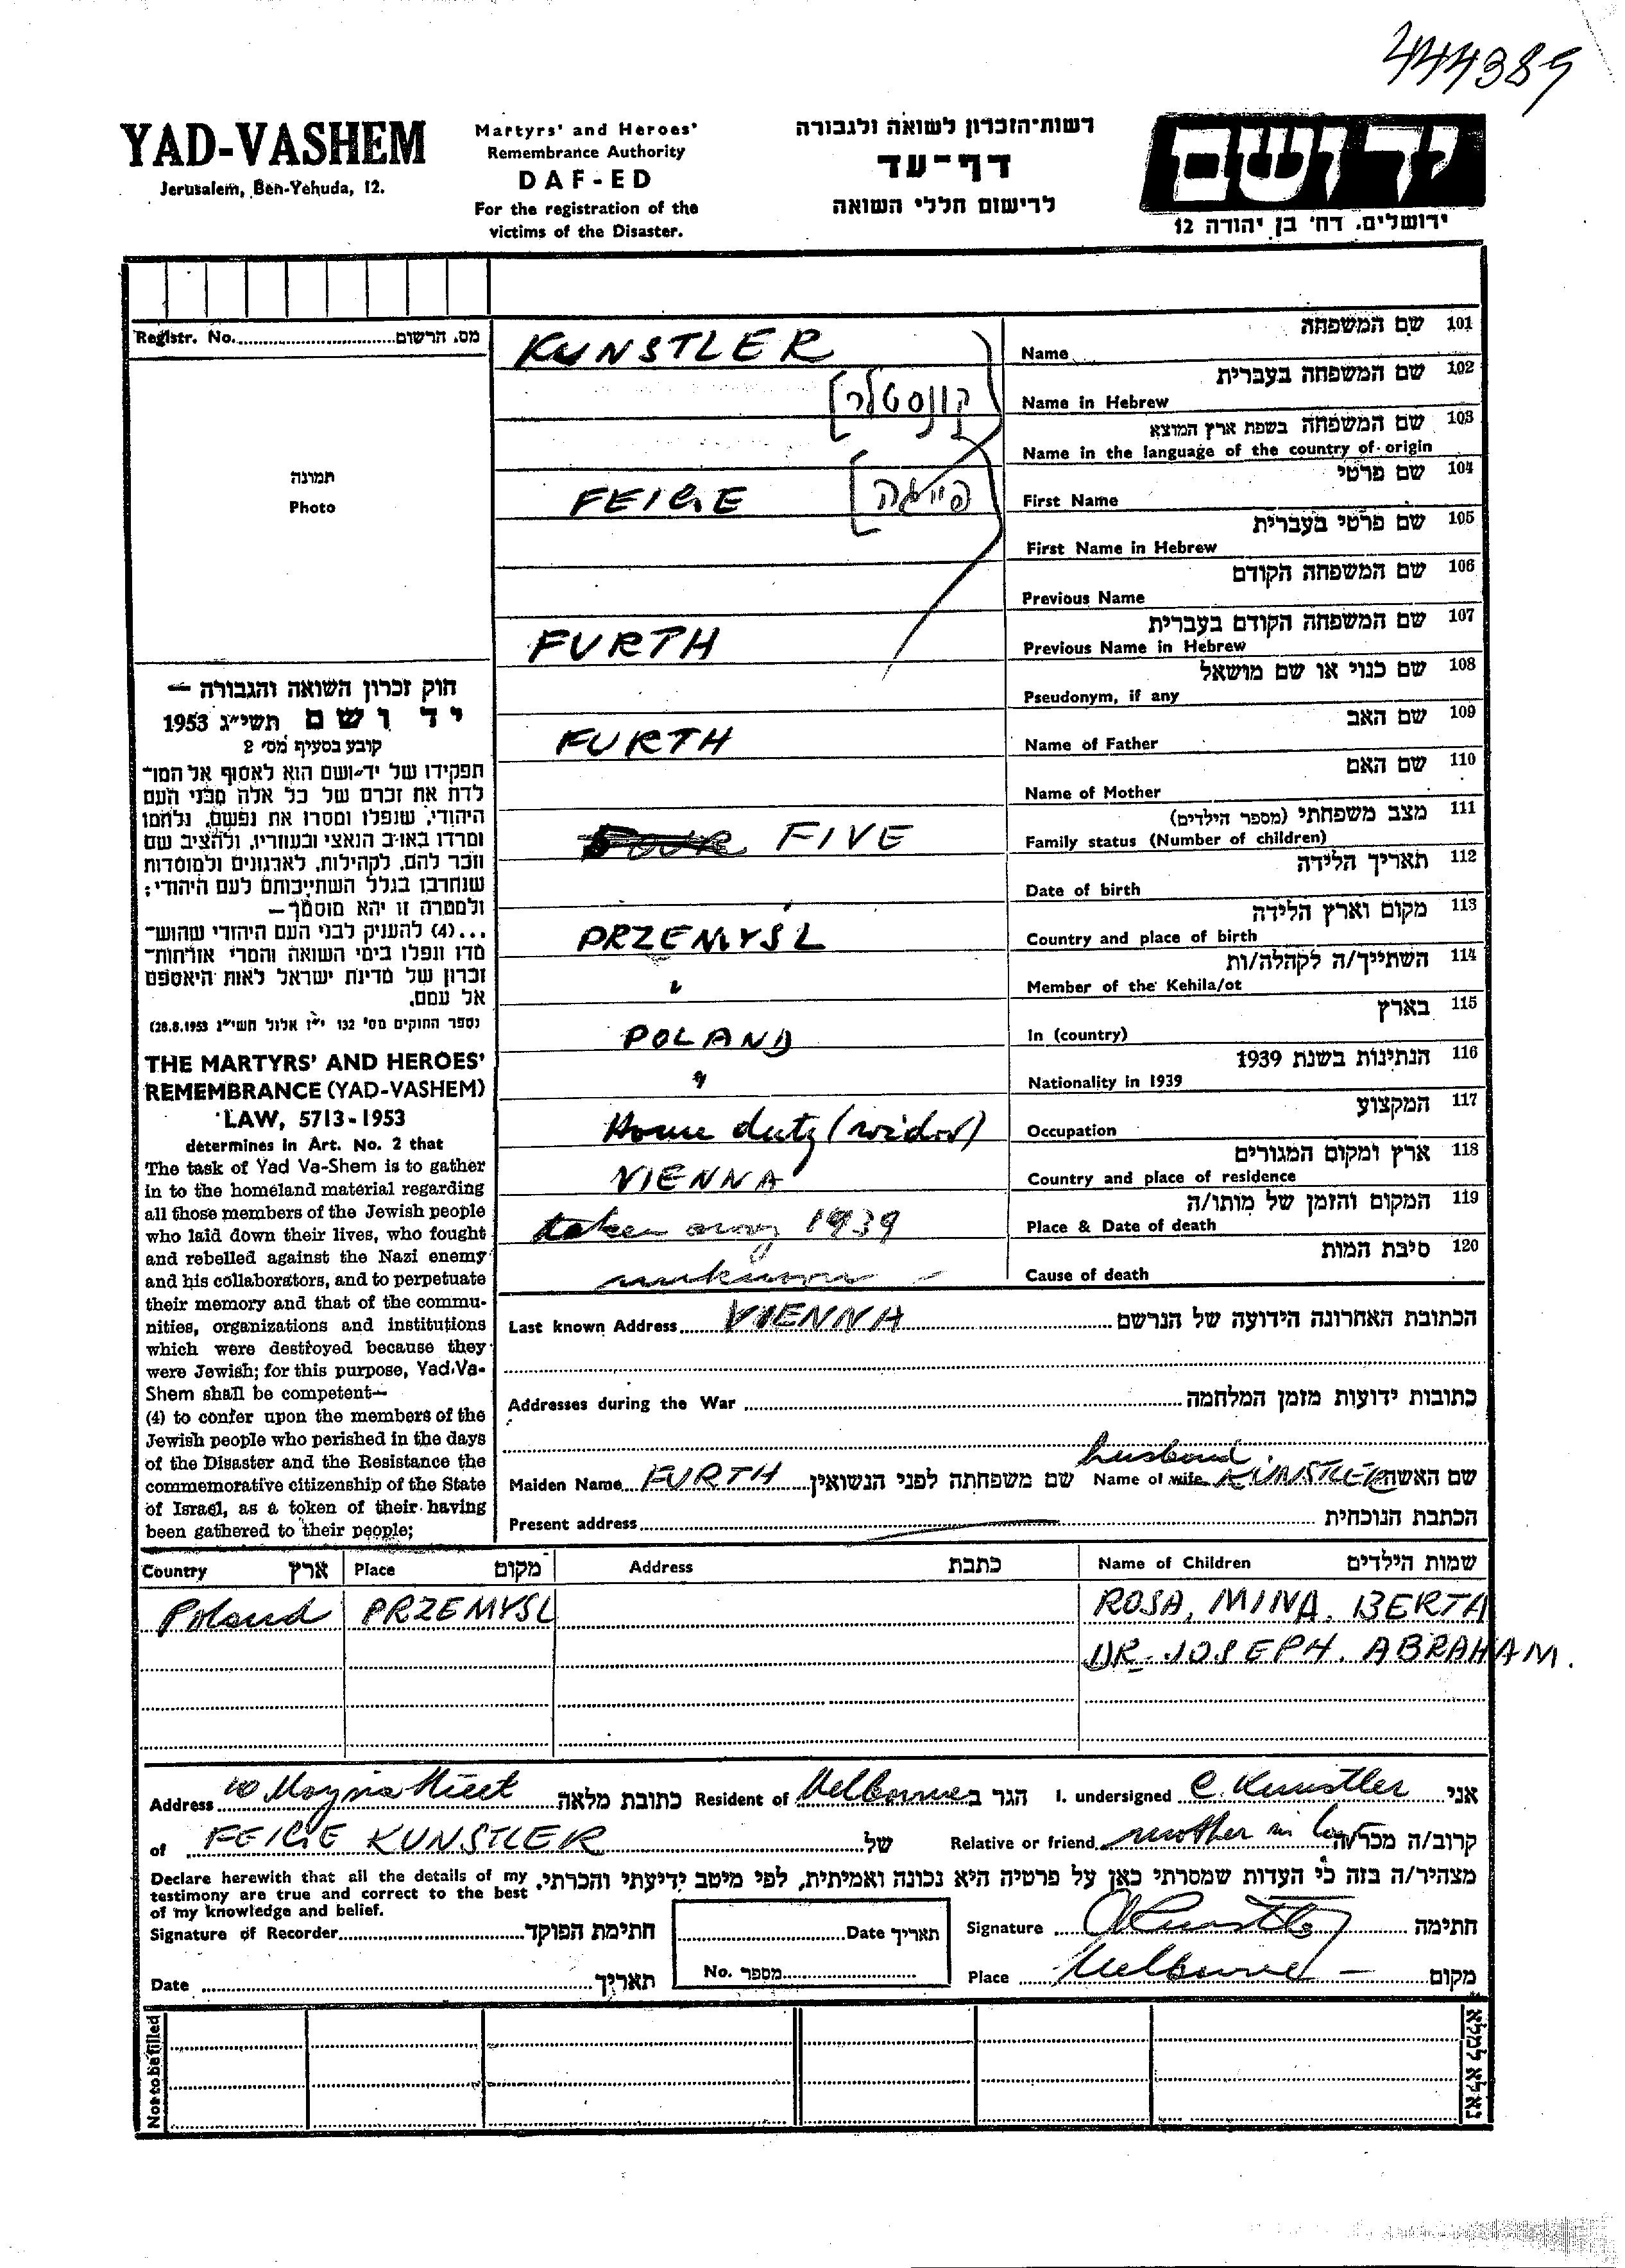 444389
YAD-VASHEM
Jerusalem, Ben-Yehuda, 12.
Martyrs' and Heroes'
Remembrance Authority
DAF-ED
For the registration of the
victims of the Disaster.
רשות־הזכרון לשואה ולגבורה
דף־עד
לרישום חללי השואה
יד ושם
ירושלים, רח' בן יהודה 12
Registr. No. מס. הרשום
תמונה
Photo
חוק זכרון השואה והגבורה —
יד ושם תשי״ג 1953
קובע בסעיף מס׳ 2
תפקידו של יד־ושם הוא לאסוף אל המו־
לדת את זכרם של כל אלה מבני העם
היהודי, שנפלו ומסרו את נפשם, נלחמו
ומרדו באויב הנאצי ובעוזריו, ולהציב שם
וזכר להם, לקהילות, לארגונים ולמוסדות
שנחרבו בגלל השתייכותם לעם היהודי;
ולמטרה זו יהא מוסמך—
...(4) להעניק לבני העם היהודי שהוש־
מדו ונפלו בימי השואה והמרי אזרחות־
זכרון של מדינת ישראל לאות היאספם
אל עמם.
(ספר החוקים מס' 132 י״ז אלול תשי״ג 28.8.1953)
THE MARTYRS' AND HEROES'
REMEMBRANCE (YAD-VASHEM)
LAW, 5713-1953
determines in Art. No. 2 that
The task of Yad Va-Shem is to gather
in to the homeland material regarding
all those members of the Jewish people
who laid down their lives, who fought
and rebelled against the Nazi enemy
and his collaborators, and to perpetuate
their memory and that of the commu-
nities, organizations and institutions
which were destroyed because they
were Jewish; for this purpose, Yad-Va-
Shem shall be competent—
(4) to confer upon the members of the
Jewish people who perished in the days
of the Disaster and the Resistance the
commemorative citizenship of the State
of Israel, as a token of their having
been gathered to their people;
101 שם המשפחה
KUNSTLER Name
102 שם המשפחה בעברית
[קונסטלר] Name in Hebrew
103 שם המשפחה בשפת ארץ המוצא
Name in the language of the country of origin
104 שם פרטי
FEIGE [פייגה] First Name
105 שם פרטי בעברית
First Name in Hebrew
106 שם המשפחה הקודם
Previous Name
107 שם המשפחה הקודם בעברית
FURTH Previous Name in Hebrew
108 שם כנוי או שם מושאל
Pseudonym, if any
109 שם האב
FURTH Name of Father
110 שם האם
Name of Mother
111 מצב משפחתי (מספר הילדים)
FIVE Family status (Number of children)
112 תאריך הלידה
Date of birth
113 מקום וארץ הלידה
PRZEMYSL Country and place of birth
114 השתייך/ה לקהלה/ות
" Member of the Kehila/ot
115 בארץ
POLAND In (country)
116 הנתינות בשנת 1939
" Nationality in 1939
117 המקצוע
Home duty (widow) Occupation
118 ארץ ומקום המגורים
VIENNA Country and place of residence
119 המקום והזמן של מותו/ה
taken away 1939 Place & Date of death
120 סיבת המות
unknown - Cause of death
Last known Address VIENNA הכתובת האחרונה הידועה של הנרשם
Addresses during the War כתובות ידועות מזמן המלחמה
husband
Maiden Name FURTH שם משפחתה לפני הנשואין Name of wife KUNSTLER שם האשה
Present address הכתבת הנוכחית
Country ארץ Place מקום Address כתבת Name of Children שמות הילדים
Poland PRZEMYSL ROSA, MINA, BERTA
DR. JOSEPH. ABRAHAM.
Address 10 Street כתובת מלאה Resident of Melbourne הגר ב I. undersigned C. Kunstler אני
of FEIGE KUNSTLER של Relative or friend mother in law קרוב/ה מכר/ה
Declare herewith that all the details of my
testimony are true and correct to the best
of my knowledge and belief.
מצהיר/ה בזה כי העדות שמסרתי כאן על פרטיה היא נכונה ואמיתית, לפי מיטב ידיעתי והכרתי.
Signature of Recorder חתימת הפוקד Date תאריך Signature CKunstler חתימה
Date תאריך No. מספר Place Melbourne - מקום
Not to be filled
נא לא למלא